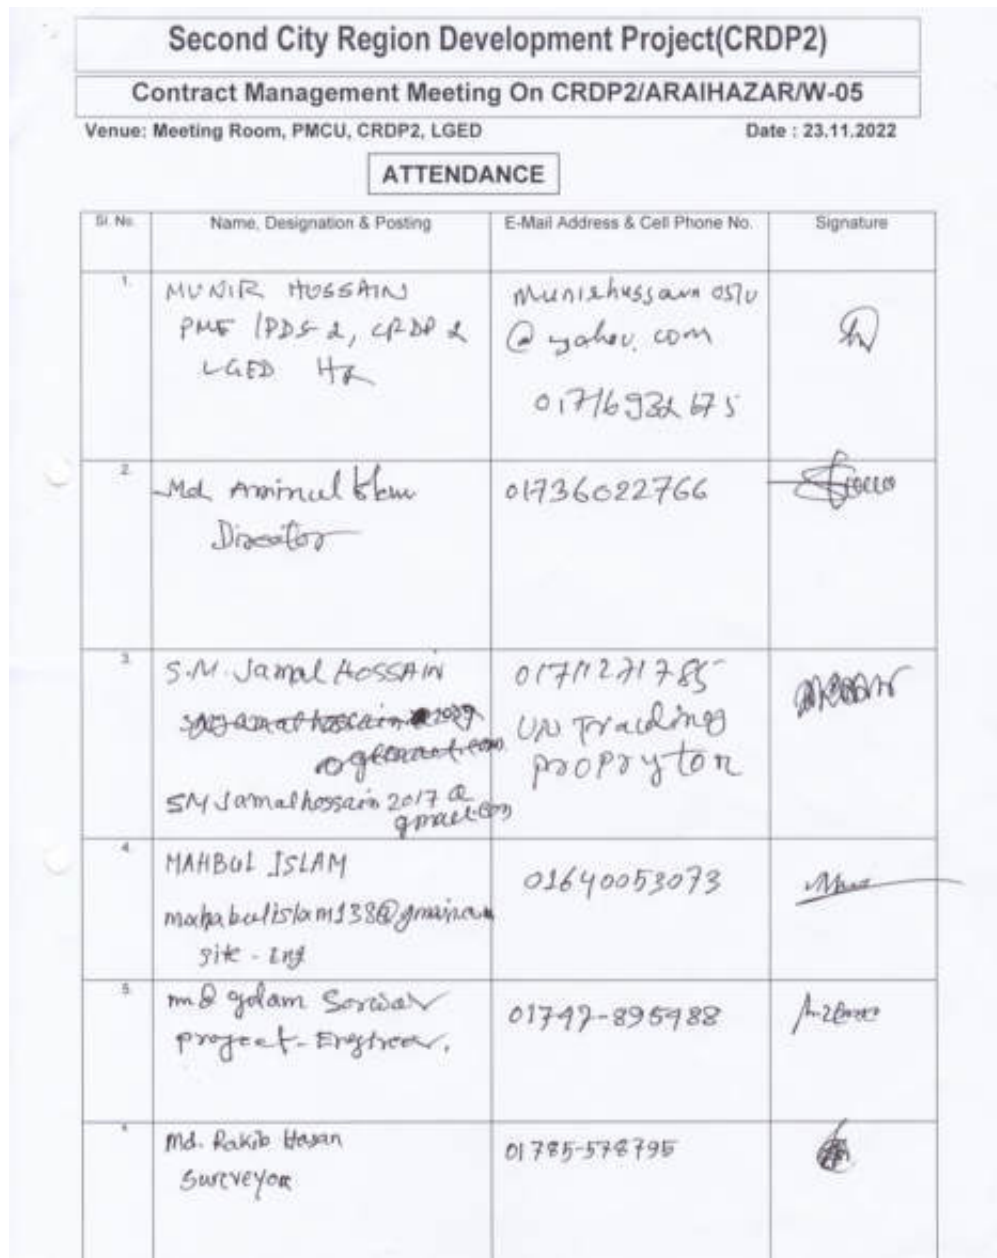 Second City Region Development Project(CRDP2)
Contract Management Meeting On CRDP2/ARAIHAZAR/W-05
Venue: Meeting Room, PMCU, CRDP2, LGED Date : 23.11.2022
ATTENDANCE
Sl. No. Name, Designation & Posting E-Mail Address & Cell Phone No. Signature
1.
MUNIR HOSSAIN
PME /PDS-2, CRDP 2
LGED HQ
@ yahoo.com
2.
Md. Aminul
Director
01736022766
3.
S.M. Jamal HOSSAIN
SMJamalhossain 2017 @
gmail.com
01711271785
UN Trading
propryton
4.
MAHBUL ISLAM
mahabulislam138@
site - Eng
01640053073
5.
golam Sorwar
project-Engineer.
6.
Md. Rakib Hasan
Surveyor
01785-578795